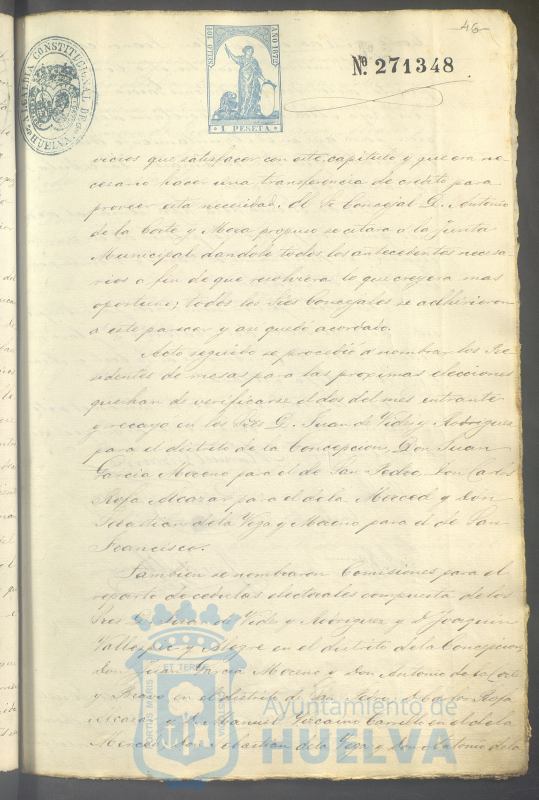 46
ALCALDIA CONSTITUCIONAL DE HUELVA
SELLO 10º
AÑO 1875
1 PESETA
Nº 271348
vicios que satisfacer con este capitulo y que era ne-
cesario hacer una transferencia de credito para
proveer esta necesidad. El Sr Concejal D. Antonio
de la Corte y Mora propuso se citara á la Junta
Municipal dandole todos los antecedentes necesa-
rios a fin de que resolviera lo que creyera mas
oportuno; todos los Sres Concejales se adhirieron
a este parecer y asi quedó acordado.
Acto seguido se procedió á nombrar los Pre-
sidentes de mesas para las proximas elecciones
que han de verificarse el dos del mes entrante
y recayó en los Sres D. Juan de Vides y Rodriguez
para el distrito de la Concepcion, Don Juan
Garcia Moreno para el de San Pedro, Don Carlos
Rofa Alcazar para el de la Merced y Don
Sebastian de la Vega y Moreno para el de San
Francisco.
Tambien se nombraron Comisiones para el
reparto de cedulas electorales compuesta de los
Sres D. Juan de Vides y Rodriguez y D. Joaquin
y Alegre en el distrito de la Concepcion
Don Juan Garcia Moreno y Don Antonio de la Corte
y Bravo en el distrito de San Pedro, D. Carlos Rofa
Alcazar y D. Manuel en el de la
Merced, Don Sebastian de la Vega y Don Antonio de la
PORTUS MARIS ET TERRAE CUSTODIA
Ayuntamiento de
HUELVA